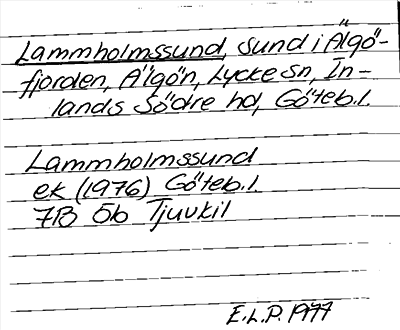 Lammholmssund, sund i Älgö-
fjorden, Älgön, Lycke sn, In-
lands Södre hd, Göteb.l.
Lammholmssund
ek (1976) Göteb.l.
7B 5b Tjuvkil
E.L.P. 1977